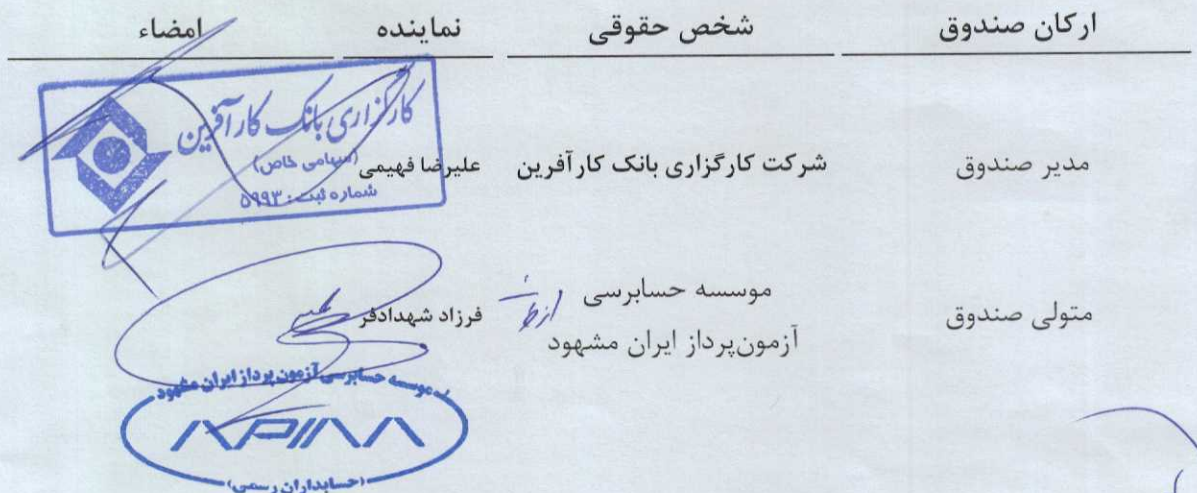 ارکان صندوق شخص حقوقی نماینده امضاء
مدیر صندوق شرکت کارگزاری بانک کارآفرین علیرضا فهیمی
کارگزاری بانک کارآفرین
(سهامی خاص)
شماره ثبت: ۵۹۹۳
متولی صندوق موسسه حسابرسی آزمون‌پرداز ایران مشهود فرزاد شهدادفر
موسسه حسابرسی آزمون پرداز ایران مشهود
(حسابداران رسمی)